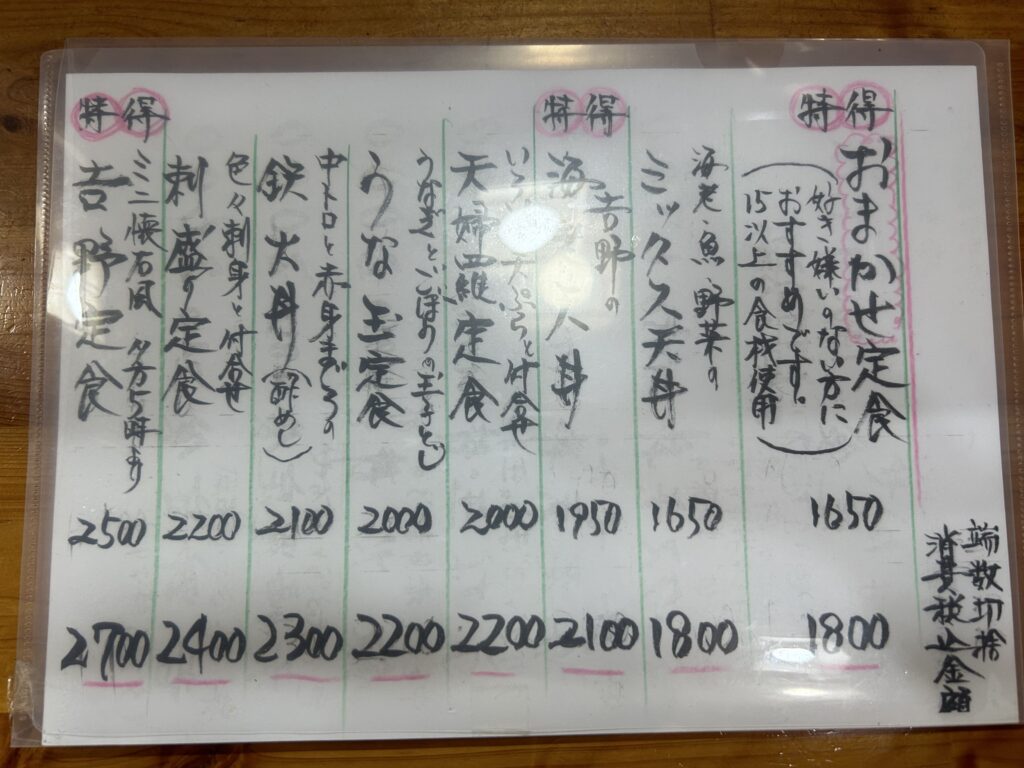 特得
おまかせ定食
(好き嫌いのない方に
おすすめです。
15以上の食材使用)
1650
1800
海老・魚・野菜の
ミックス天丼
1650
1800
特得
吉野の
海 人丼
1950
2100
天ぷらと付合せ
天婦羅定食
2000
2200
うなぎとごぼうの玉子とじ
うな玉定食
2000
2200
中トロと赤身まぐろの
鉄火丼(酢めし)
2100
2300
色々刺身と付合せ
刺盛り定食
2200
2400
特得
ミニ懐石風 夕方5時より
吉野定食
2500
2700
端数切捨
消費税込金額